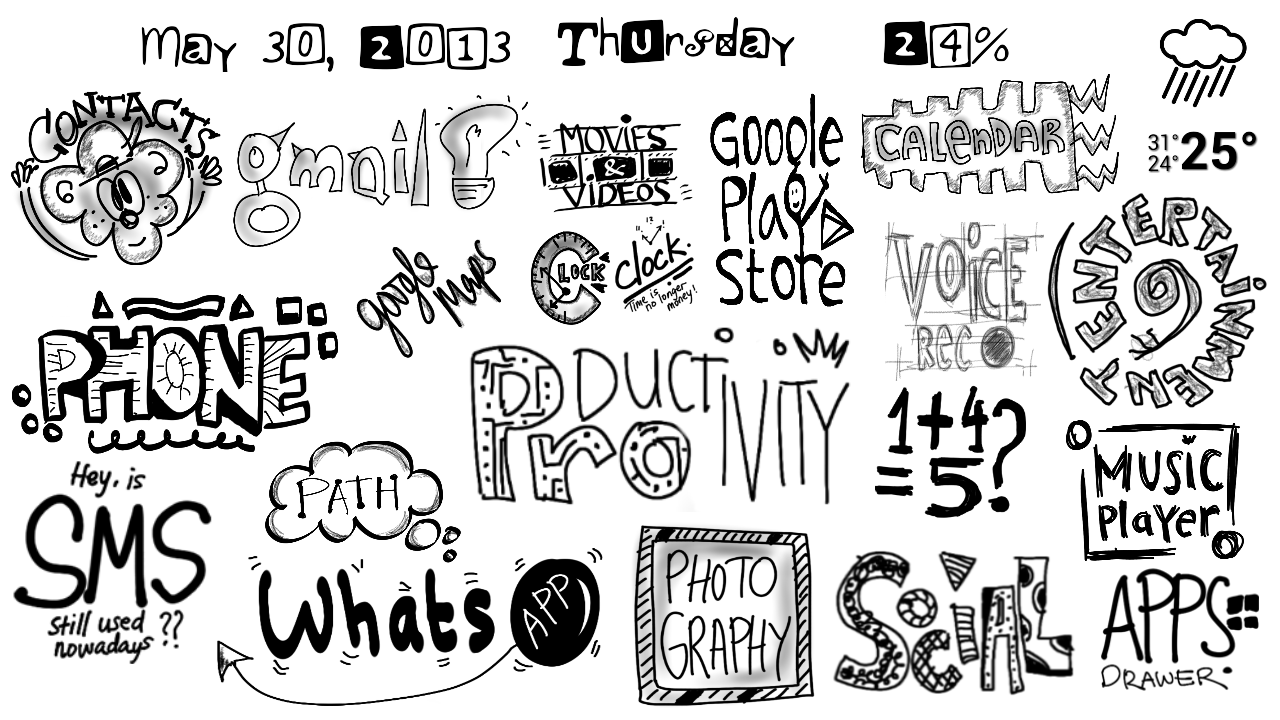 May 30, 2013 Thursday 24%
31°
24° 25°
CONTACTS
gmail
MOVIES
&
VIDEOS
Google
Play
Store
CALENDAR
google
map
CLOCK
clock.
12
Time is
no longer
money!
VOiCE
REC
ENTERTAINMENT
PHONE
PRODUCTIVITY
Pro
1+4
=5?
MUSIC
Player
Hey, is
SMS
still used
nowadays ??
PATH
Whats APP
PHOTO
GRAPHY
SociAL
APPS
DRAWER